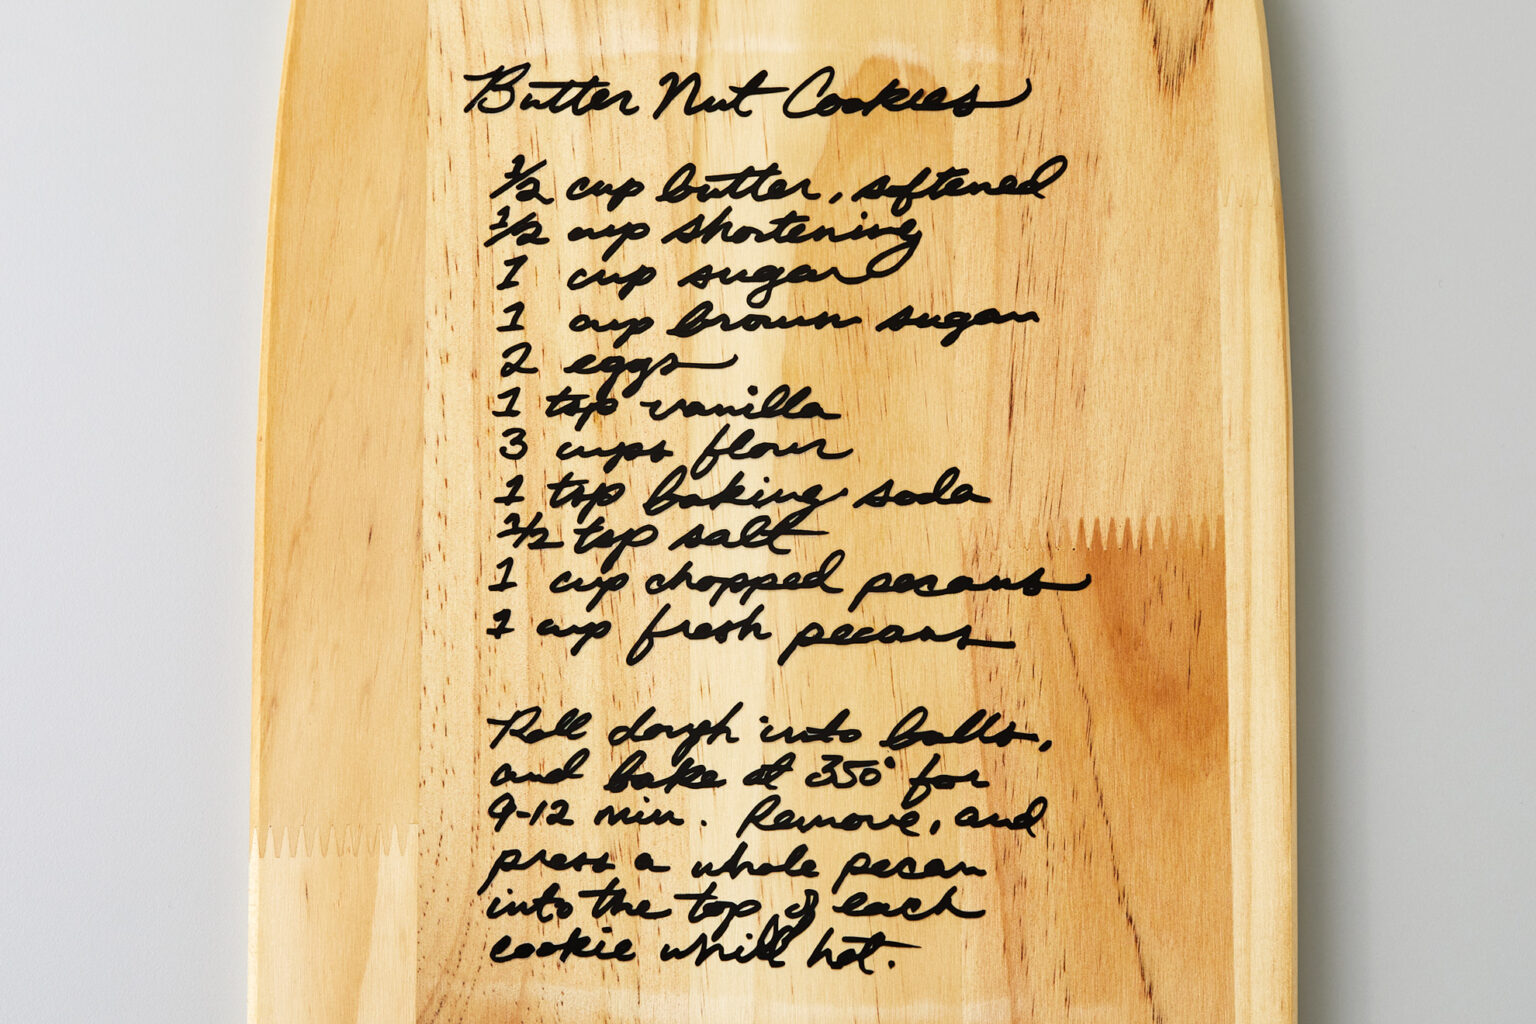 Butter Nut Cookies
1/2 cup butter, softened
1/2 cup shortening
1 cup sugar
1 cup brown sugar
2 eggs
1 tsp vanilla
3 cups flour
1 tsp baking soda
1/2 tsp salt
1 cup chopped pecans
1 cup fresh pecans
Roll dough into balls,
and bake at 350° for
9-12 min. Remove, and
press a whole pecan
into the top of each
cookie while hot.